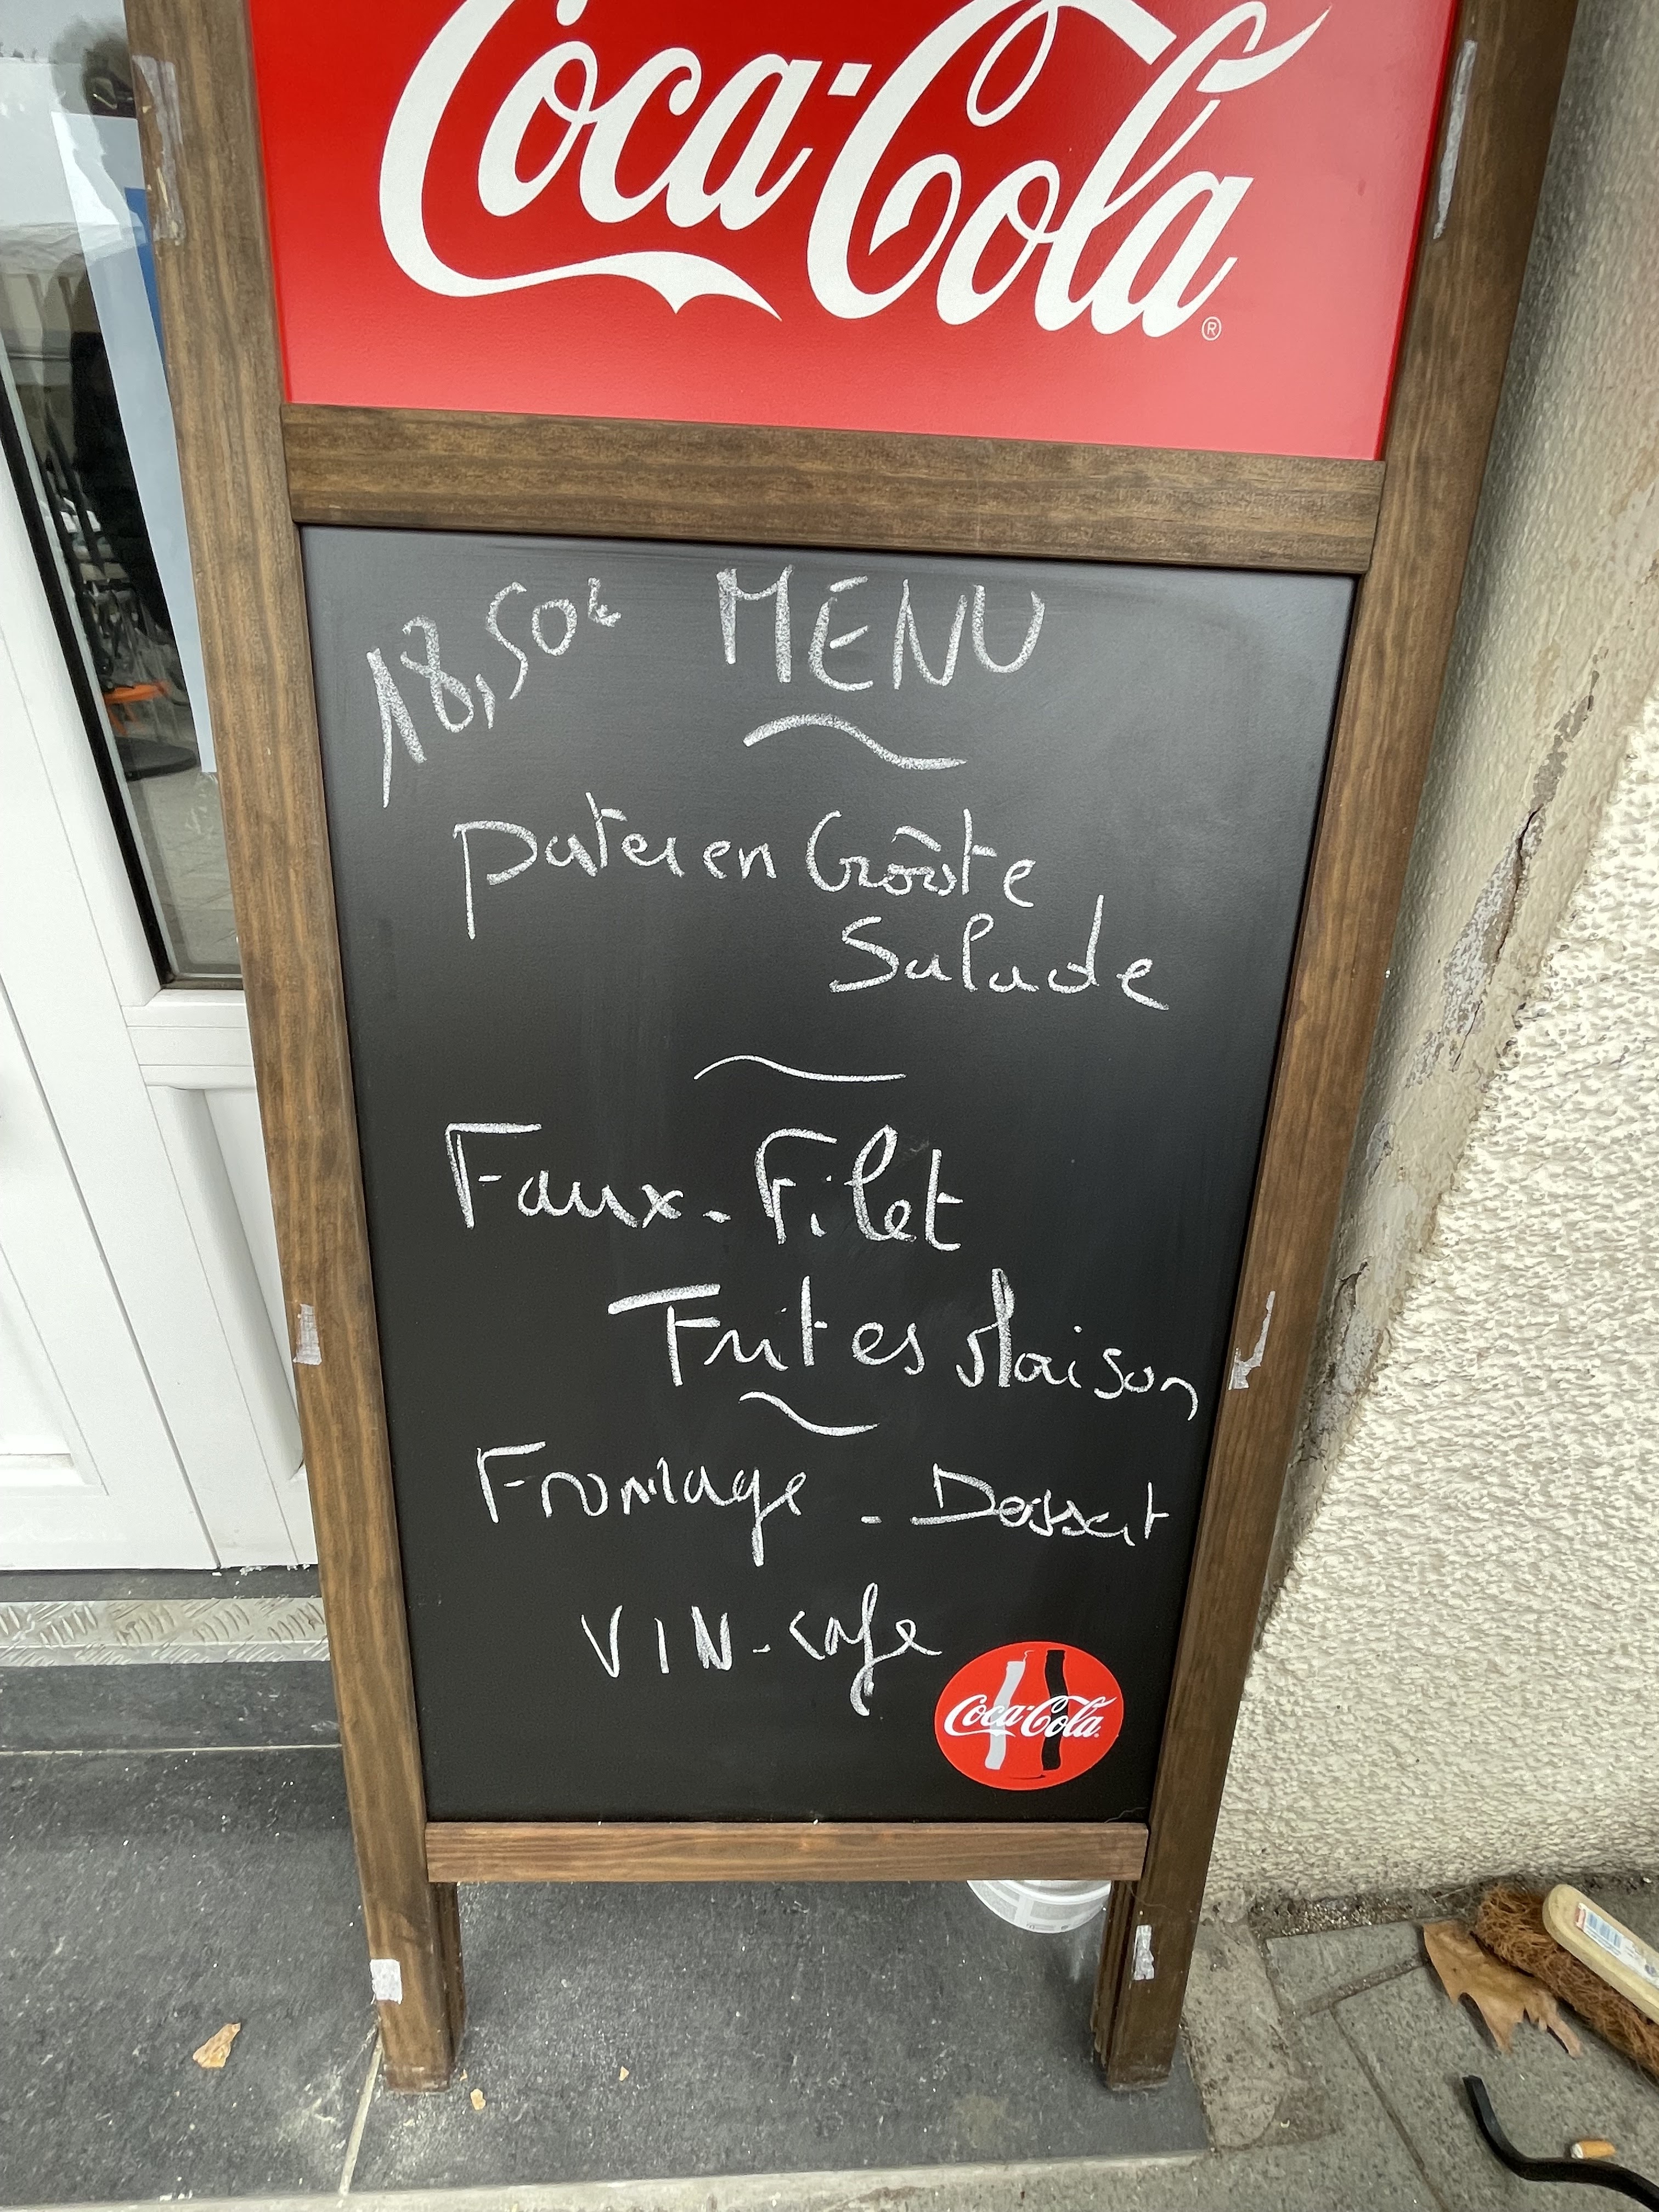 Coca-Cola®
18,50€ MENU
Pater en Croûte
Salade
Faux-Filet
Frites Maison
Fromage - Dessert
VIN - Cafe
Coca-Cola